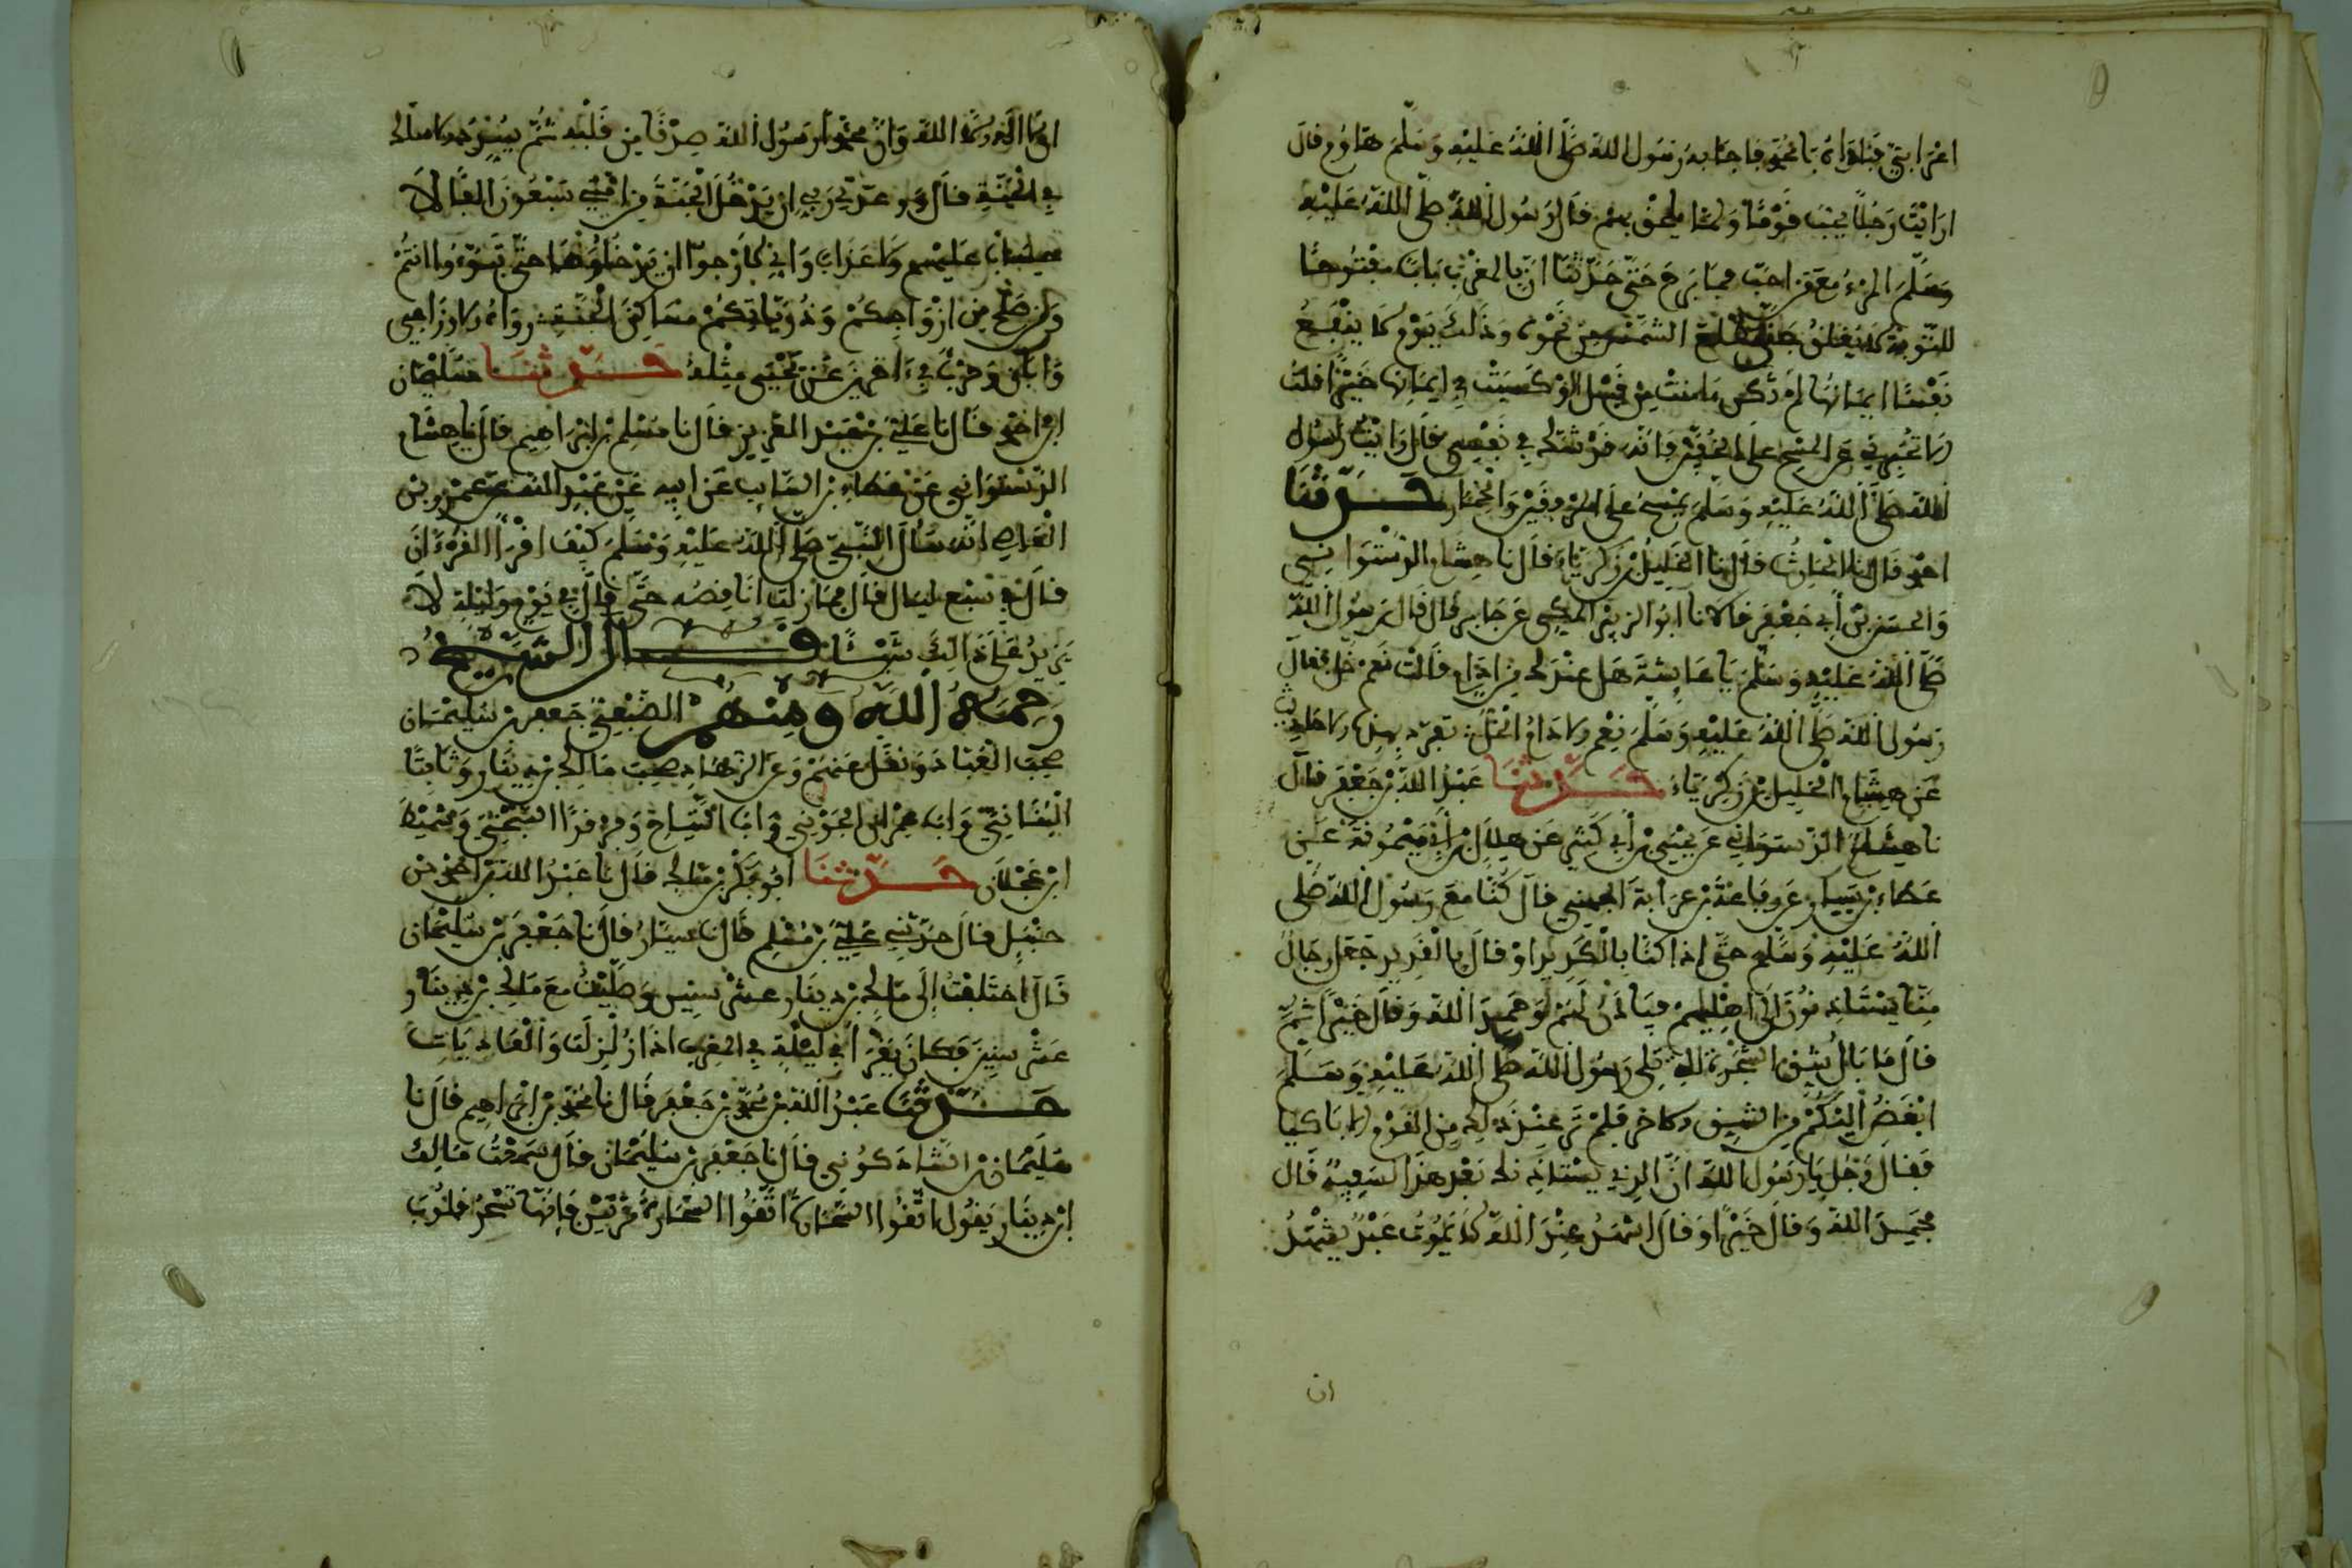 اعرابي فناداه يا محمد فاجابه رسول الله صلى الله عليه وسلم هاؤم فال
ارايت رجلا يحب فوما ولما يلحق بهم فال رسول الله صلى الله عليه
وسلم المرء مع من احب فما برح حتى حدثنا ان بالمغرب بابا مفتوحا
للتوبة لا يغلق حتى تطلع الشمس من نحوه وذلك يوم لا ينفع
نفسا ايمانها لم تكن امنت من قبل او كسبت في ايمانها خيرا فلت
الا تخبرني عن المسح على الخفين فانه فد شك في نفسي فال رايت رسول
الله صلى الله عليه وسلم يمسح على الموفين والخمار حدثنا
احمد فال نا الحارث فال نا الخليل بن زكرياء فال نا هشام الدستوانسي
والحسن بن أبي جعفر فالا نا ابو الزبير المكي عن جابر فال فال رسول الله
صلى الله عليه وسلم يا عايشة هل عندك من ادام فالت نعم خل ففال
رسول الله صلى الله عليه وسلم نعم الادام الخل تفرد بهذا الحديث
عن هشام الخليل بن زكرياء حدثنا عبد الله بن جعفر فال
نا هشام الدستوايي عن يحيى بن أبي كثير عن هلال بن أبي ميمونة عن
عطاء بن يسار عن رفاعة بن عرابة الجهني فال كنا مع رسول الله صلى
الله عليه وسلم حتى إذا كنا بالكديد او فال بالفديد جعل رجال
منا يستاذنون إلى اهليهم فياذن لهم وحمد الله وفال خيرا ثم
فال ما بال شق الشجرة التي تلي رسول الله صلى الله عليه وسلم
ابغض اليكم من الشق الاخر فلم نر عند ذلك من الفوم الا باكيا
ففال رجل يا رسول الله ان الذي يستاذنك بعد هذا لسفيه فال
فحمد الله وفال خيرا وفال اشهد عند الله لا يموت عبد يشهد
ان
ان لا اله الا الله وان محمدا رسول الله صدفا من فلبه ثم يسدد الا سلك
في الجنة فال وعدني ربي ان يدخل الجنة من امتي سبعون الفا لا
حساب عليهم ولا عذاب واني لارجوا ان يدخلوها حتى تبوءوا انتم
ومن صلح من ازواجكم وذرياتكم مساكن الجنة رواه الاوزاعي
وابان وحرب في اخرين عن يحيى مثله حدثنا سليمان
ابن احمد فال نا علي بن عبد العزيز فال نا مسلم بن ابراهيم فال نا هشام
الدستوائي عن عطاء بن السائب عن ابيه عن عبد الله بن عمرو بن
العاص انه سال النبي صلى الله عليه وسلم كيف افرا الفرءان
فال في سبع ليال فال فما زلت انافصه حتى فال في يوم وليلة لا
يزيد على ذالك شيئا فال الشيخ
رحمه الله ومنهم الضبعي جعفر بن سليمان
صحب العباد ونفل عنهم وعن الزهاد صحب مالك بن دينار وثابتا
البناني وابا عمران الجوني وابا التياح وفرفدا السبخي وشميط
ابن عجلان حدثنا ابو بكر بن مالك فال نا عبد الله بن احمد بن
حنبل فال حدثني علي بن مسلم فال نا سيار فال نا جعفر بن سليمان
فال اختلفت إلى مالك بن دينار عشر سنين وصليت مع مالك بن دينار
عشر سنين فكان يفرا في ليلة في المغرب اذا زلزلت والعاديات
حدثنا عبد الله بن محمد بن جعفر فال نا محمد بن ابراهيم فال نا
سليمان بن الشاذكوني فال نا جعفر بن سليمان فال سمعت مالك
ابن دينار يفول اتفوا السحارة اتفوا السحارة مرتين فانها تسحر فلوب